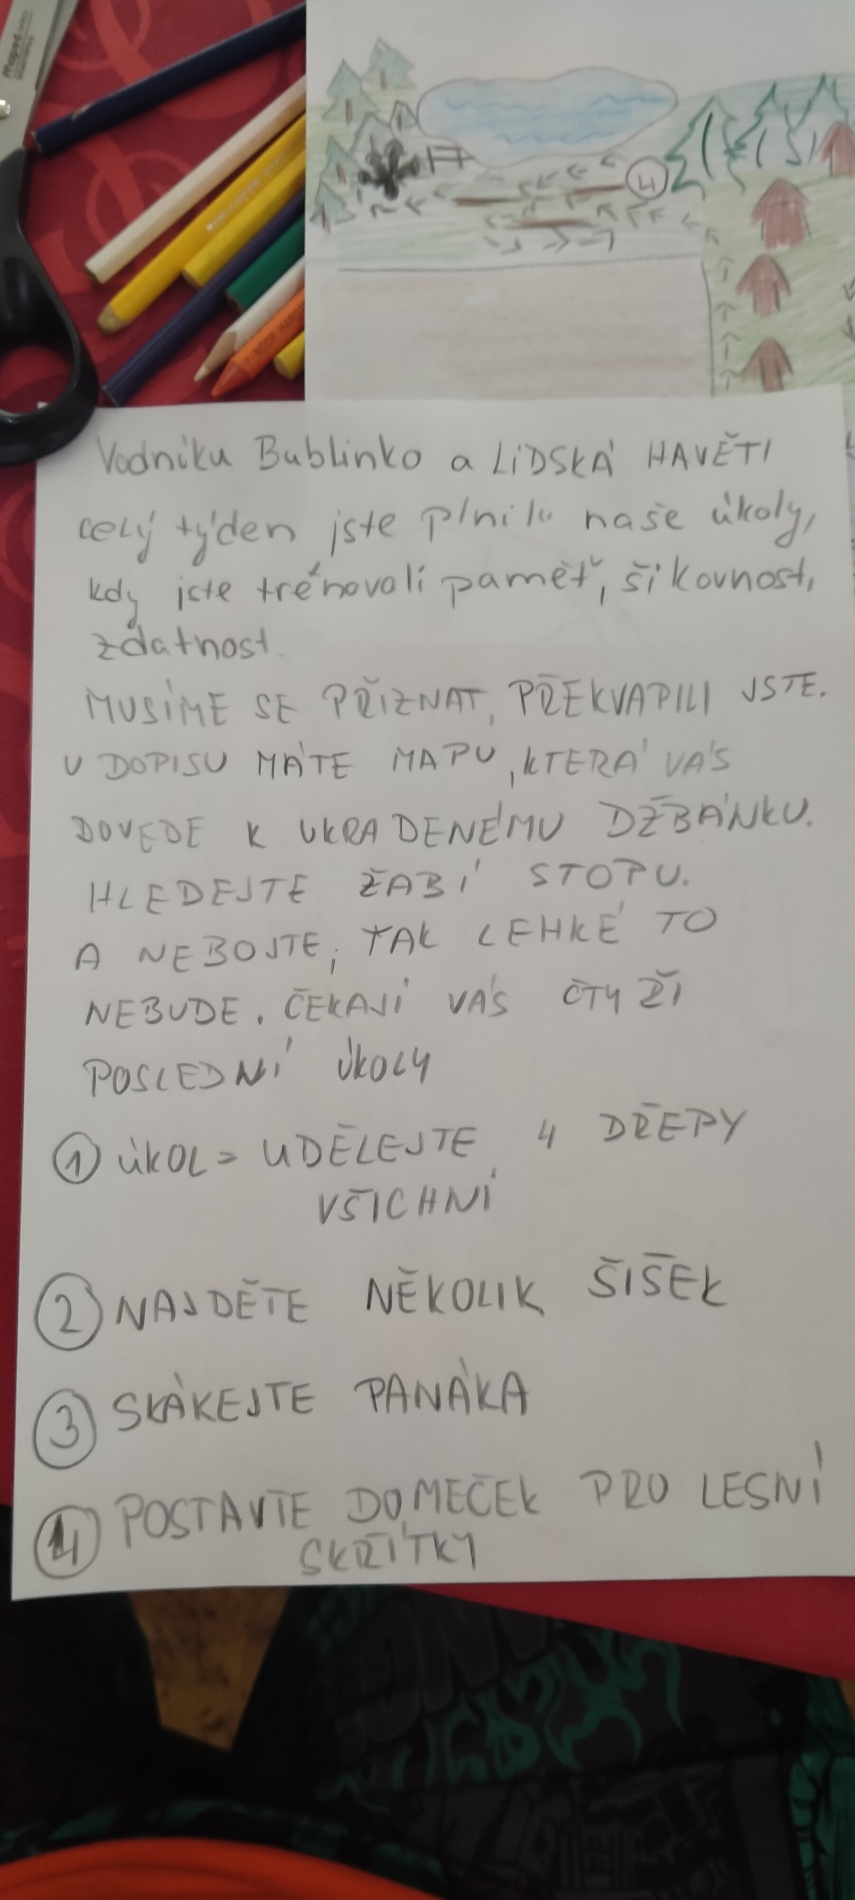 Maped
4
Vodníku Bublinko a LiDSKÁ HAVĚTI
celý týden jste plnili naše úkoly,
kdy jste trénovali paměť, šikovnost,
zdatnost.
MUSÍME SE PŘIZNAT, PŘEKVAPILI JSTE.
V DOPISU MÁTE MAPU, KTERÁ VÁS
DOVEDE K UKRADENÉMU DŽBÁNKU.
HLEDEJTE ŽABÍ STOPU.
A NEBOJTE, TAK LEHKÉ TO
NEBUDE. ČEKAJÍ VÁS ČTYŽI
POSLEDNÍ ÚKOLY
1 ÚKOL = UDĚLEJTE 4 DŘEPY
VŠICHNI
2 NAJDĚTE NĚKOLIK ŠIŠEK
3 SKÁKEJTE PANÁKA
4 POSTAVTE DOMEČEK PRO LESNÍ
SKŘÍTKY